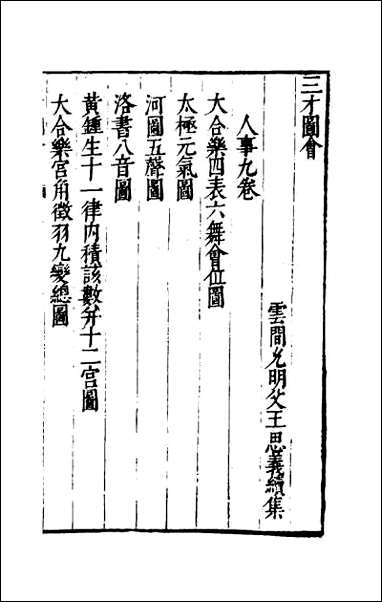 三才圖會
雲間允明父王思義續集
人事九卷
大合樂四表六舞會位圖
太極元氣圖
河圖五聲圖
洛書八音圖
黃鍾生十一律內積該數并十二宮圖
大合樂宮角徵羽九變總圖